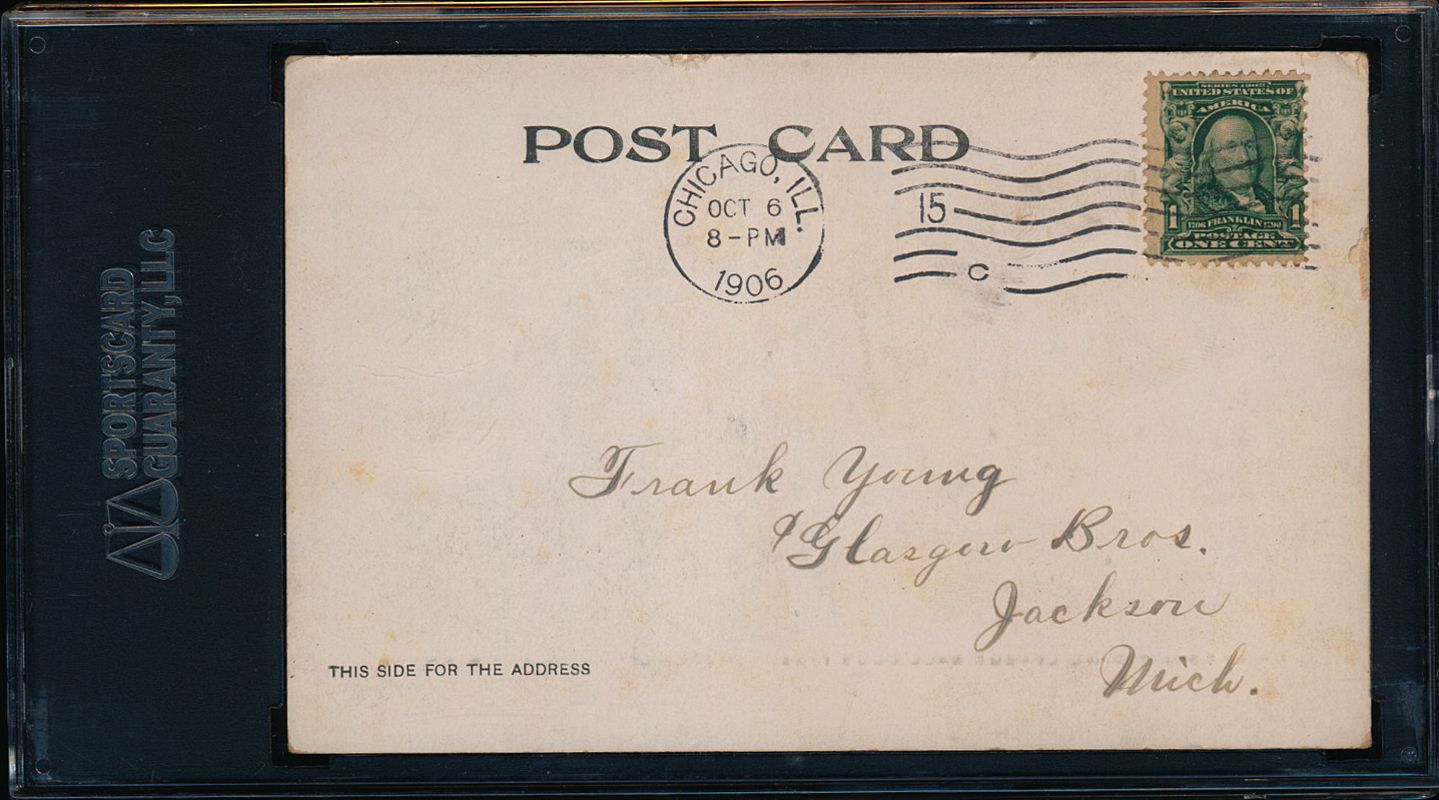 POST CARD
CHICAGO, ILL.
OCT 6
8-PM
1906
15
C
SERIES 1902
UNITED STATES OF
AMERICA
1 1
1706 FRANKLIN 1790
POSTAGE
ONE CENT
Frank Young
Glasgow Bros.
Jackson
Mich.
THIS SIDE FOR THE ADDRESS
SPORTSCARD
GUARANTY, LLC